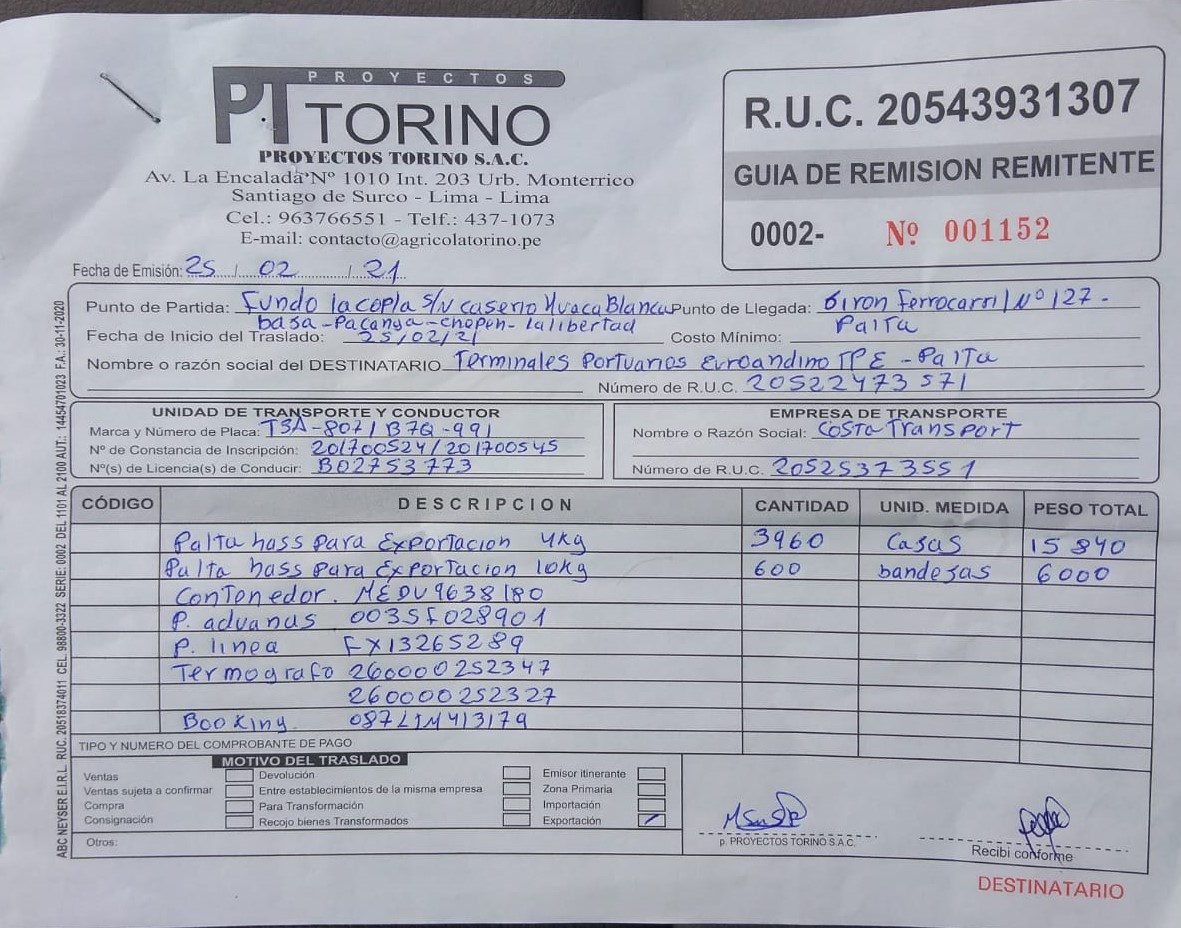 PROYECTOS
PT TORINO
PROYECTOS TORINO S.A.C.
Av. La Encalada Nº 1010 Int. 203 Urb. Monterrico
Santiago de Surco - Lima - Lima
Cel.: 963766551 - Telf.: 437-1073
E-mail: contacto@agricolatorino.pe
R.U.C. 20543931307
GUIA DE REMISION REMITENTE
0002- Nº 001152
Fecha de Emisión: 25 / 02 / 21
Punto de Partida: Fundo la copla S/N caserio Huaca Blanca
baja-Pacanga-chepen-la libertad
Punto de Llegada: Giron Ferrocarril Nº 127 -
Paita
Fecha de Inicio del Traslado: 25/02/21 Costo Mínimo:
Nombre o razón social del DESTINATARIO Terminales Portuarios Euroandino TPE - Paita
Número de R.U.C. 20522473571
UNIDAD DE TRANSPORTE Y CONDUCTOR
Marca y Número de Placa: T3A-807/B7Q-991
Nº de Constancia de Inscripción: 201700524/201700545
Nº(s) de Licencia(s) de Conducir: B02753773
EMPRESA DE TRANSPORTE
Nombre o Razón Social: Costa Transport
Número de R.U.C. 20525373551
CÓDIGO DESCRIPCION CANTIDAD UNID. MEDIDA PESO TOTAL
Palta hass para Exportacion 4kg 3960 Cajas 15 840
Palta hass para Exportacion 10kg 600 bandejas 6000
Contenedor. MEDU9638180
P. aduanas 0035F028901
P. linea FX13265289
Termografo 260000252347
260000252327
Booking. 087LIM413179
TIPO Y NUMERO DEL COMPROBANTE DE PAGO
MOTIVO DEL TRASLADO
Ventas Devolución Emisor itinerante
Ventas sujeta a confirmar Entre establecimientos de la misma empresa Zona Primaria
Compra Para Transformación Importación
Consignación Recojo bienes Transformados Exportación
Otros:
p. PROYECTOS TORINO S.A.C.
Recibi conforme
DESTINATARIO
ABC NEYSER E.I.R.L. RUC. 20518374011 CEL. 98800-3322 SERIE: 0002 DEL 1101 AL 2100 AUT.: 14454701023 F.A.: 30-11-2020